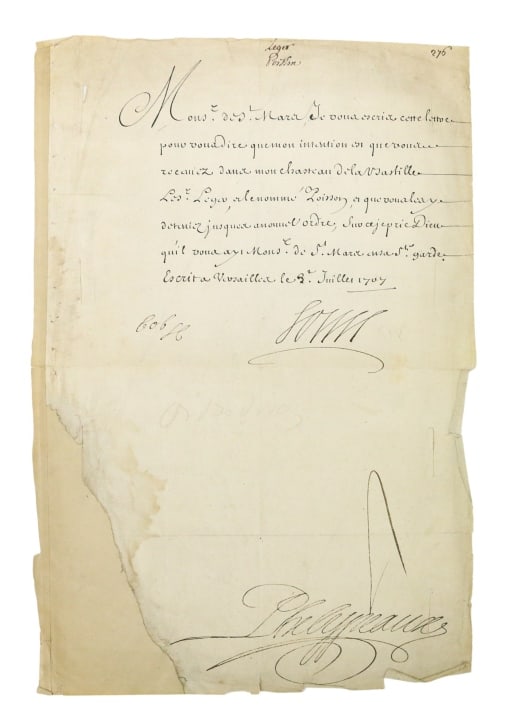 Leger
276
Mons.r de S.t Mars, Je vous escris cette lettre
pour vous dire que mon intention est que vous
receviez dans mon chasteau de la Bastille
Le S.r Leger, et le nommé Poisson, et que vous les y
deteniez jusques a nouvel ordre, Sur ce je prie Dieu
qu'il vous ayt Mons.r de S.t Mars en sa S.te garde
Escrit a Versailles le 8.e Juillet 1707
Louis
Phelypeaux